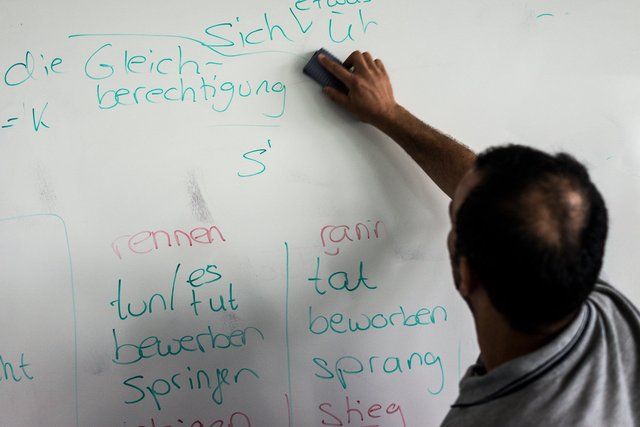 etwas
Sich ür
die Gleich-
berechtigung
= K
S'
rennen rann
tun/es tut tat
bewerben beworben
springen sprang
stieg